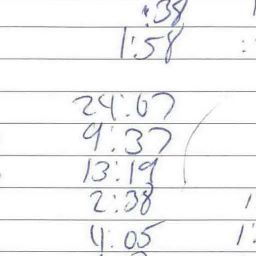 :38
1:58
24:07
9:37
13:19
2:38
4:05